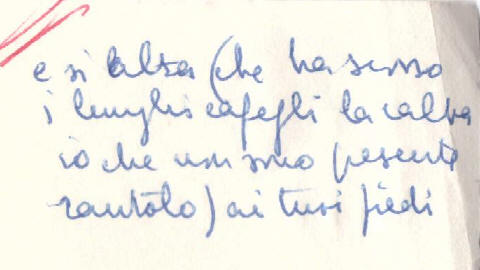 e si alza (che ha scosso
i lunghi capelli la
io che non sono presente
rantolo) ai tuoi piedi